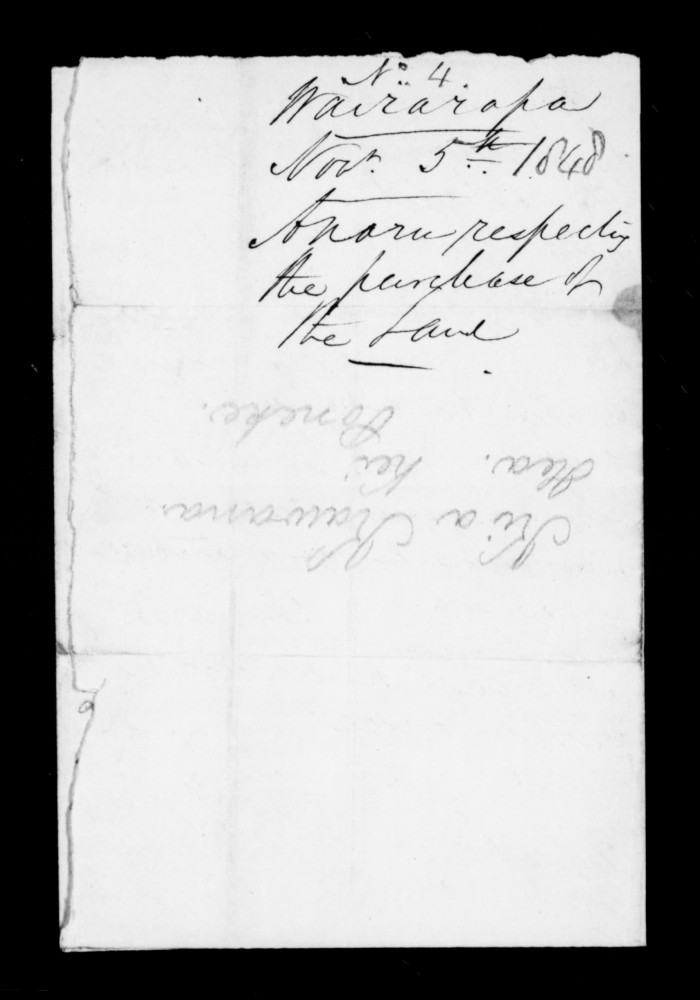 No. 4.
Wairarapa
Novr. 5th. 1848
Anaru respecting
the purchase of
the Land
Kia Kawana
Hea. kei
Poneke.